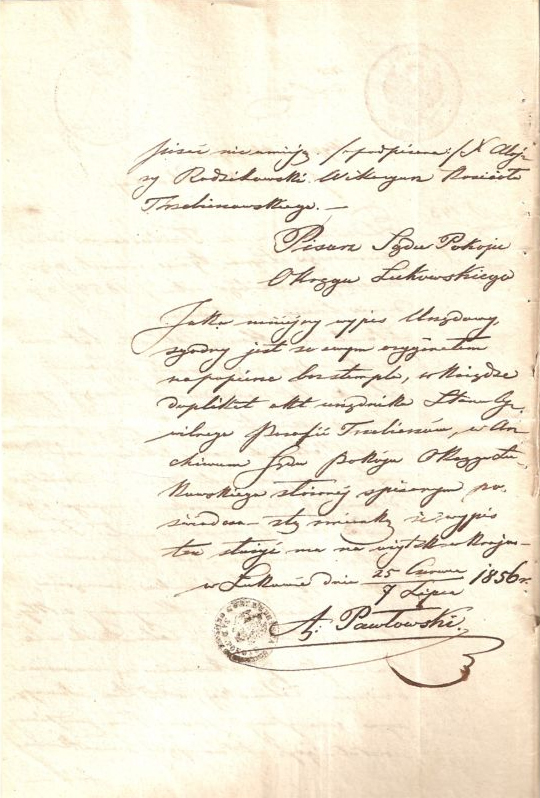 pisać nie umieją /:podpisano:/ X Aloj-
zy Radzikowski Wikaryusz Kościoła
Trzebieszowskiego. —
Pisarz Sądu Pokoju
Okręgu Łukowskiego
Jako niniejszy wypis Urzędowy,
zgodny jest ze swym oryginałem
na papierze bez stempla, w księdze
duplikat akt urzędnika Stanu Cy-
wilnego Parafii Trzebieszów, w Ar-
chiwum Sądu Pokoju Okręgu Łu-
kowskiego złożonej spisanym po-
świadcza
wypis
ten służyć ma na użytek w kraju —
w Łukowie dnia 25 Czerwca / 7 Lipca 1856 r.
A: Pawłowski